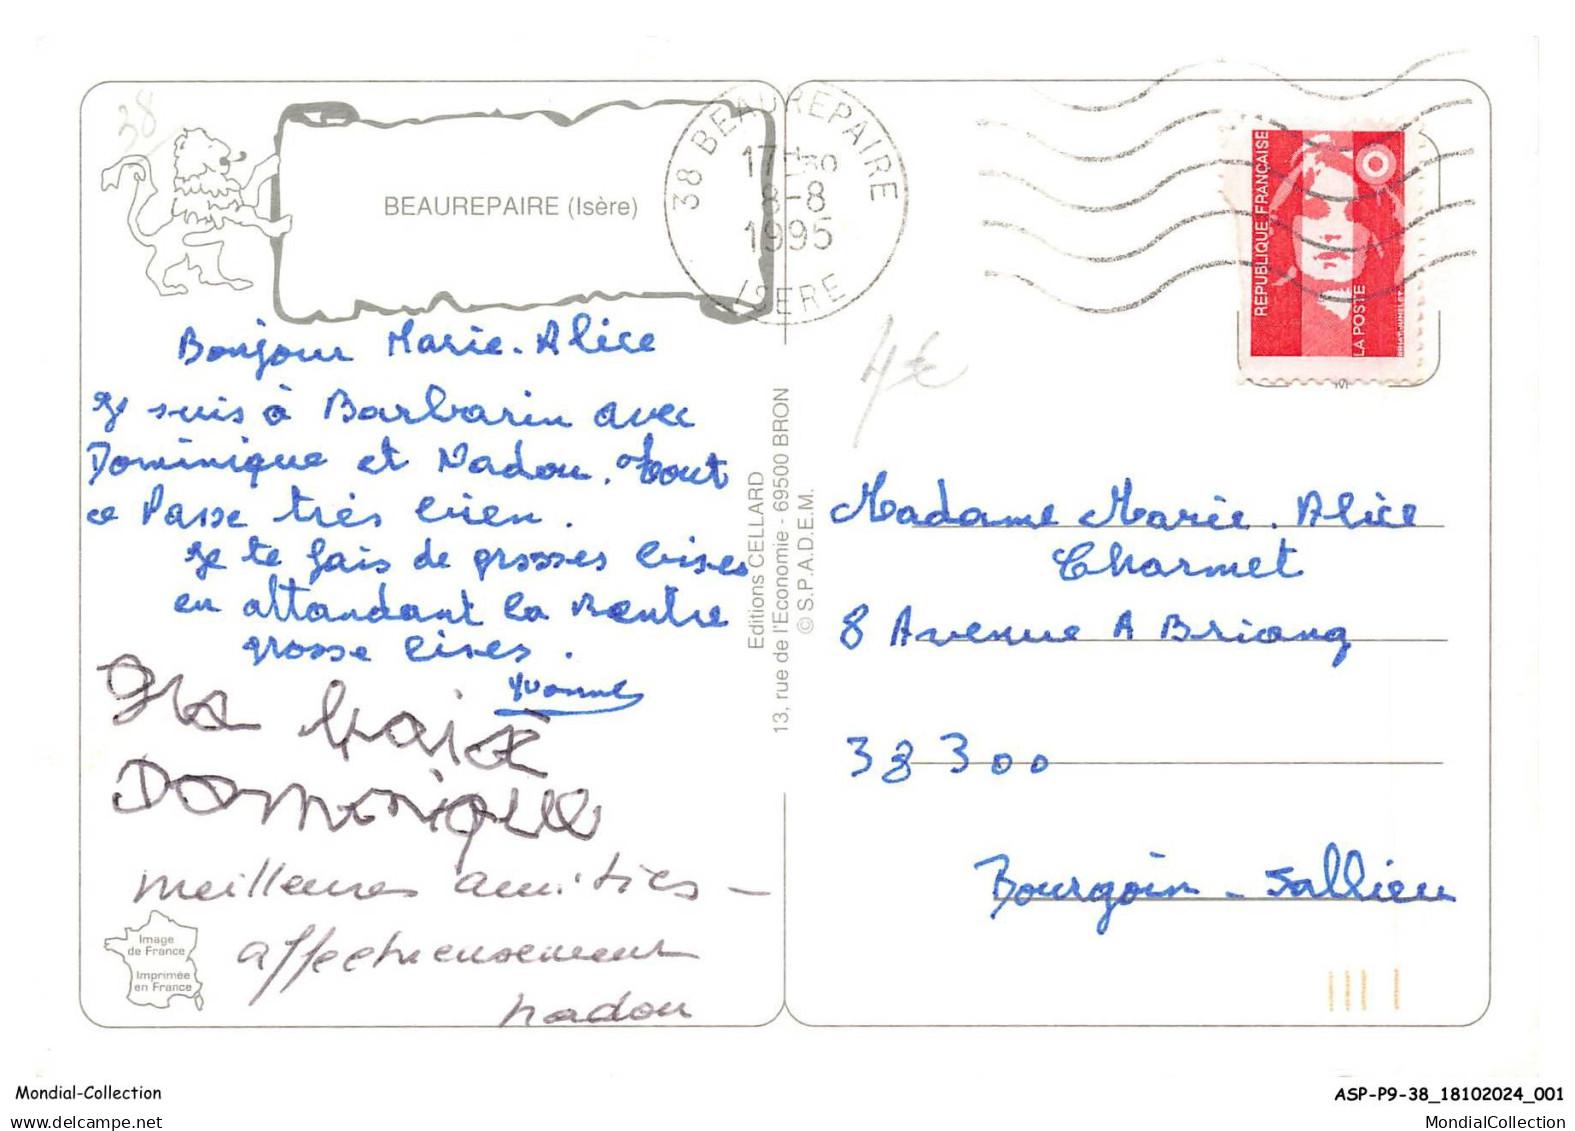 38
BEAUREPAIRE (Isère)
38 BEAUREPAIRE
17H30
8-8
1995
ISERE
REPUBLIQUE FRANÇAISE
LA POSTE
Bonjour Marie-Alice
Je suis à Barbarin avec
Dominique et Nadou. Tout
ce Passe très bien.
Je te fais de grosses bises
en attandant la Rentre
grosse bises.
Yvonne
Dominique
meilleures amitiés -
affectueusement
nadou
Image
de France
Imprimée
en France
Editions CELLARD
13, rue de l'Economie - 69500 BRON
© S.P.A.D.E.M.
4€
Madame Marie-Alice
Charmet
8 Avenue A Briang
38300
Bourgoin - Jallieu
Mondial-Collection
ASP-P9-38_18102024_001
MondialCollection